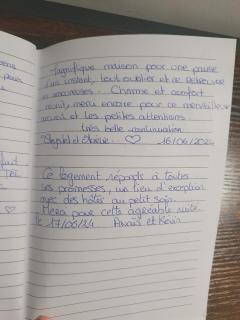 Magnifique maison pour une pause
d'un instant, tout oublier et se retrouver
en amoureuses. Charme et confort
réunit, merci encore pour ce merveilleux
accueil et les petites attentions
très belle continuation
♡ 16/06/2024
Ce logement réponds à toutes
ses promesses, un lieu d'exception
avec des hôtes au petit soin.
Merci pour cette agréable nuité.
le 17/06/24 Anaïs et Kévin